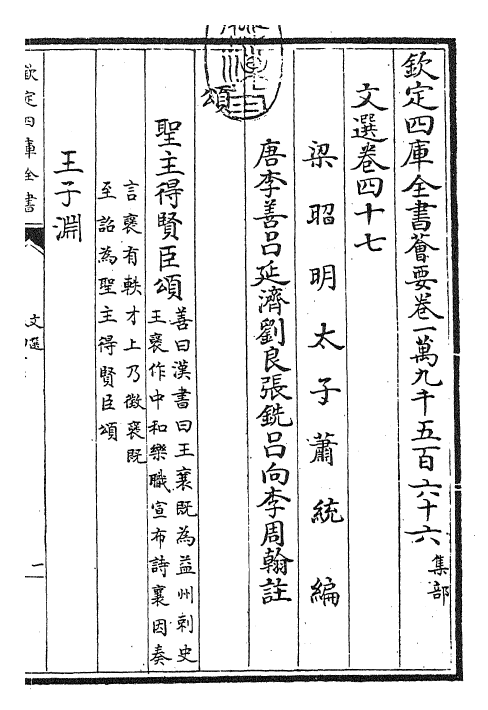 欽定四庫全書薈要卷一萬九千五百六十六 集部
文選卷四十七
梁昭明太子蕭統編
唐李善呂延濟劉良張銑呂向李周翰註
頌
聖主得賢臣頌
善曰漢書曰王襄既為益州刺史
王襃作中和樂職宣布詩襄因奏
言襃有軼才上乃徴襃既
至詔為聖主得賢臣頌
王子淵
欽定四庫全書
文選
一